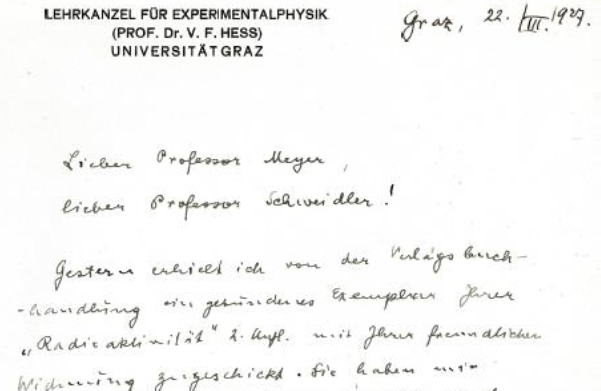 LEHRKANZEL FÜR EXPERIMENTALPHYSIK
(PROF. Dr. V. F. HESS)
UNIVERSITÄT GRAZ
Graz, 22. III. 1927.
Lieber Professor Meyer,
lieber Professor Schweidler!
Gestern erhielt ich von der Verlagsbuch-
-handlung ein gebundenes Exemplar Ihrer
„Radioaktivität" 2. Aufl. mit Ihrer freundlichen
Widmung zugeschickt. Sie haben mir